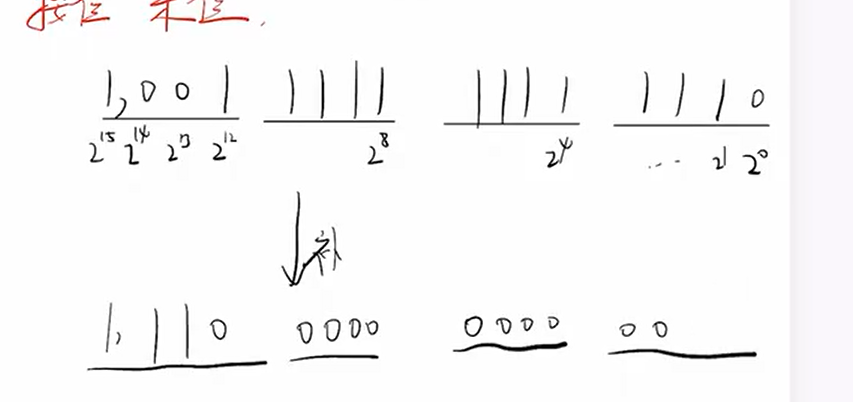 按位 末位.
1,001 1111 1111 1110
2^15 2^14 2^13 2^12 2^8 2^4 ... 2^1 2^0
补
1,110 0000 0000 00